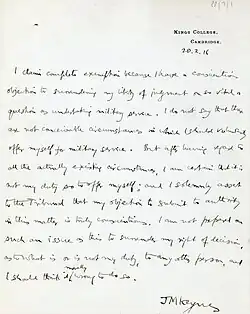 KINGS COLLEGE,
CAMBRIDGE.
28.2.16
I claim complete exemption because I have a conscientious
objection to surrendering my liberty of judgment on so vital a
question as undertaking military service. I do not say that there
are not conceivable circumstances in which I should voluntarily
offer myself for military service. But after having regard to
all the actually existing circumstances, I am certain that it is
not my duty so to offer myself; and I solemnly assert
to the Tribunal that my objection to submit to authority
in this matter is truly conscientious. I am not prepared on
such an issue as this to surrender my right of decision,
as to what is or is not my duty, to any other person, and
I should think it morally wrong to do so.
JMKeynes